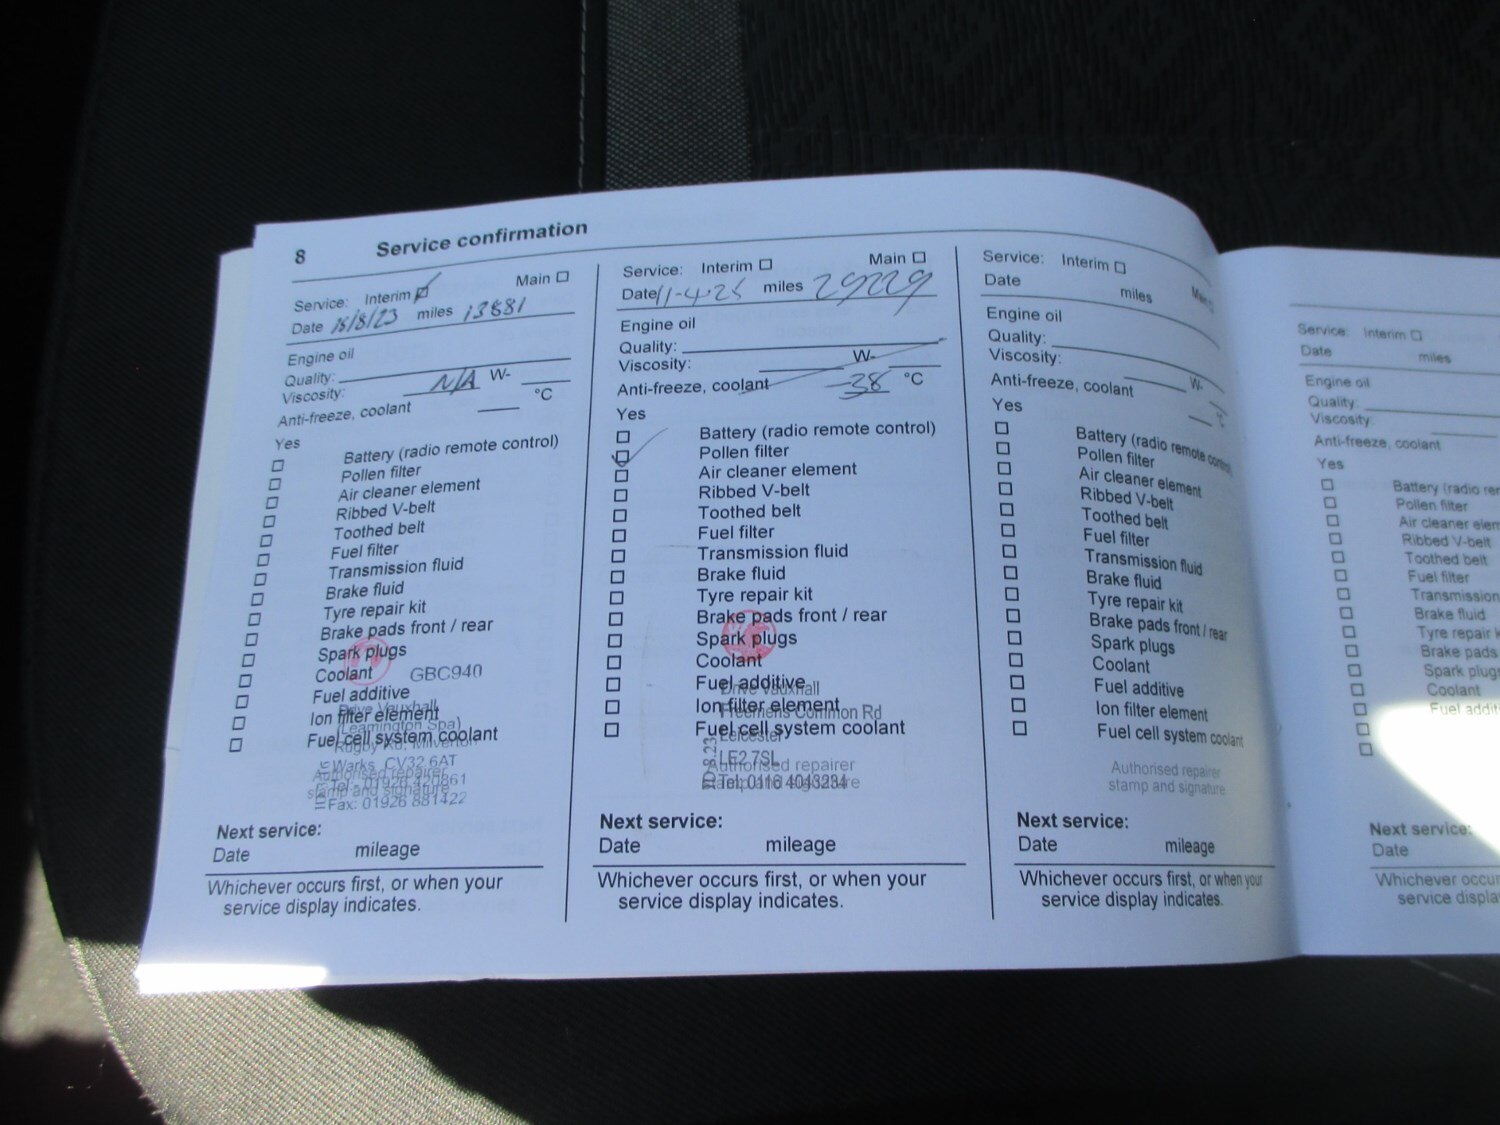 8 Service confirmation
Service: Interim Main
Date 15/8/23 miles 13881
Engine oil
Quality:
Viscosity: N/A W-
Anti-freeze, coolant °C
Yes
Battery (radio remote control)
Pollen filter
Air cleaner element
Ribbed V-belt
Toothed belt
Fuel filter
Transmission fluid
Brake fluid
Tyre repair kit
Brake pads front / rear
Spark plugs
Coolant GBC940
Fuel additive
Drive Vauxhall
Ion filter element
(Leamington Spa)
Fuel cell system coolant
Rugby Rd. Milverton
Warks CV32 6AT
Authorised repairer
Tel: 01926 420861
stamp and signature
Fax: 01926 881422
Next service:
Date mileage
Whichever occurs first, or when your
service display indicates.
Service: Interim Main
Date 11-4-25 miles 29229
Engine oil
Quality:
Viscosity: W-
Anti-freeze, coolant -38 °C
Yes
Battery (radio remote control)
Pollen filter
Air cleaner element
Ribbed V-belt
Toothed belt
Fuel filter
Transmission fluid
Brake fluid
Tyre repair kit
Brake pads front / rear
Spark plugs
Coolant
Fuel additive
Drive Vauxhall
Ion filter element
Freemens Common Rd
Fuel cell system coolant
Leicester
LE2 7SL
Authorised repairer
Tel: 0116 4043234
stamp and signature
Next service:
Date mileage
Whichever occurs first, or when your
service display indicates.
Service: Interim Main
Date miles
Engine oil
Quality:
Viscosity: W-
Anti-freeze, coolant °C
Yes
Battery (radio remote control)
Pollen filter
Air cleaner element
Ribbed V-belt
Toothed belt
Fuel filter
Transmission fluid
Brake fluid
Tyre repair kit
Brake pads front / rear
Spark plugs
Coolant
Fuel additive
Ion filter element
Fuel cell system coolant
Authorised repairer
stamp and signature
Next service:
Date mileage
Whichever occurs first, or when your
service display indicates.
Service: Interim
Date miles
Engine oil
Quality:
Viscosity:
Anti-freeze, coolant
Yes
Battery (radio
Pollen filter
Air cleaner
Ribbed V-belt
Toothed belt
Fuel filter
Transmission
Brake fluid
Tyre repair
Brake pads
Spark plugs
Coolant
Fuel
Next service:
Date
Whichever
service